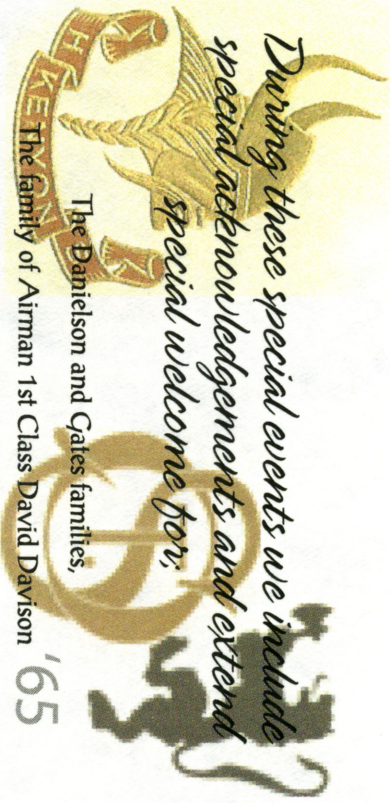 During these special events we include
special acknowledgements and extend
special welcome for;
The Danielson and Gates families,
The family of Airman 1st Class David Davison
'65